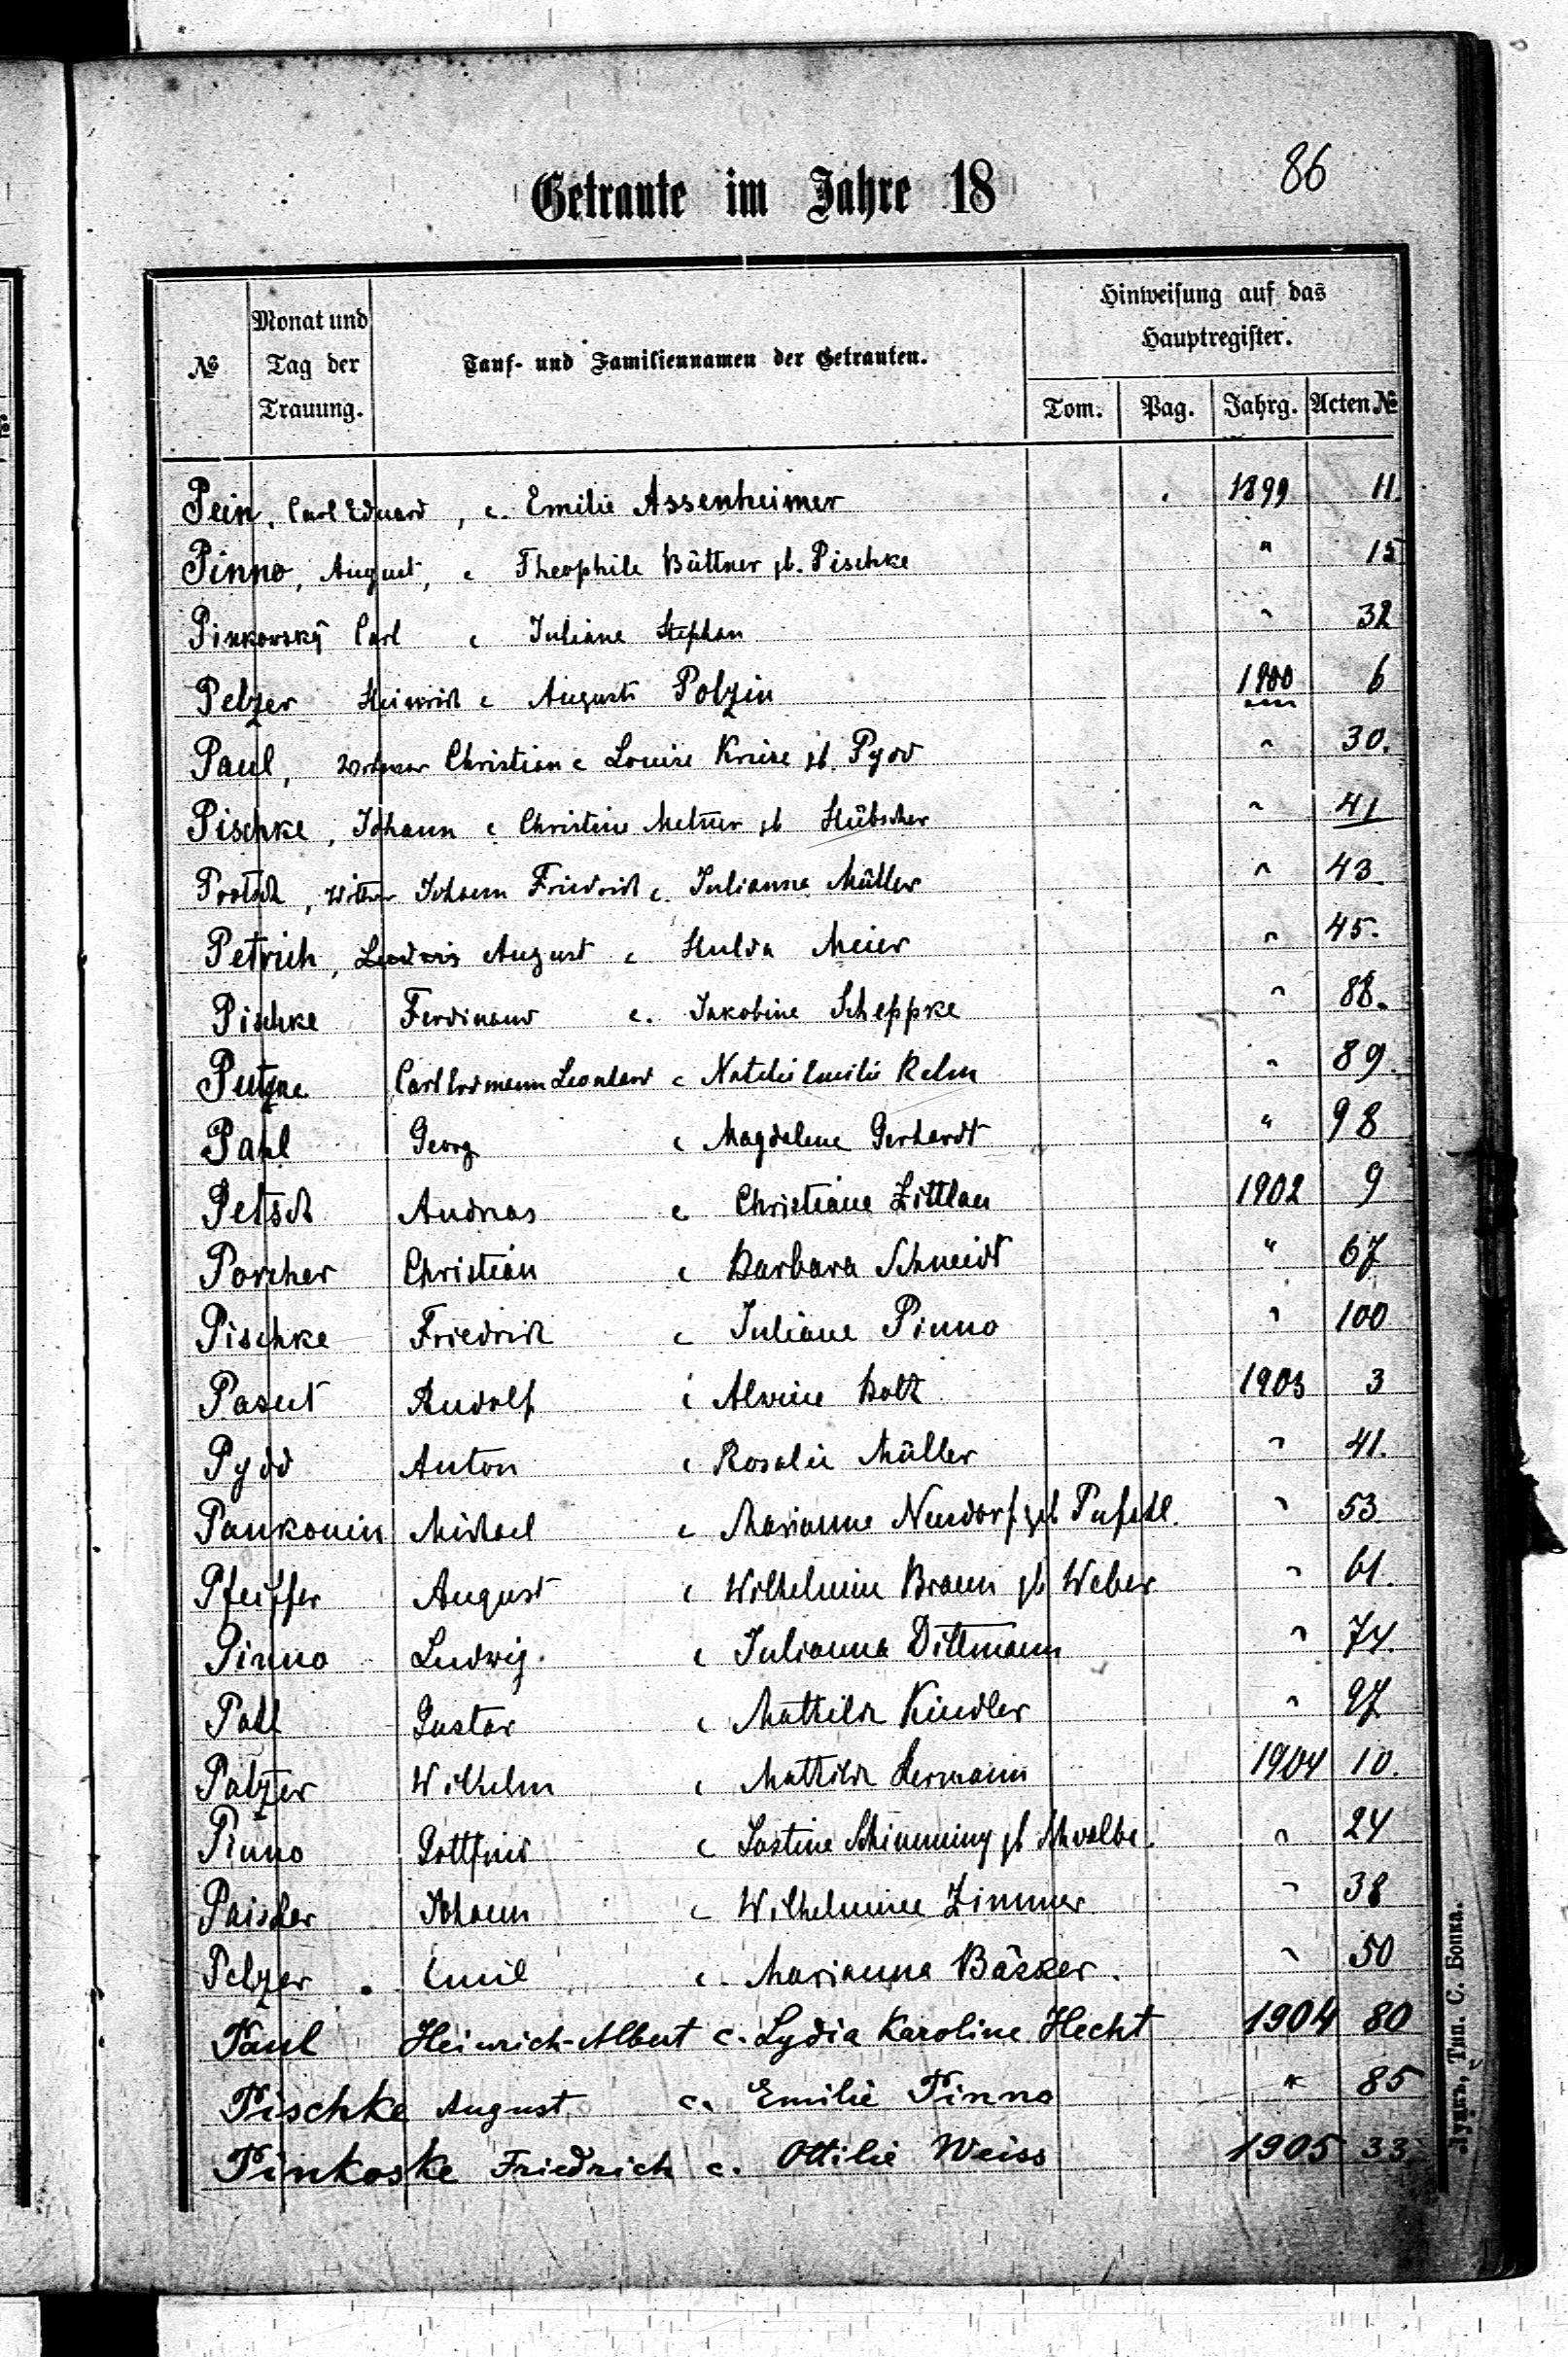 86
Getraute im Jahre 18
№ Monat und Tag der Trauung. Tauf- und Familiennamen der Getrauten. Hinweisung auf das Hauptregister.
Tom. Pag. Jahrg. Acten №
Pein, Carl Eduard, c. Emilie Assenheimer 1899 11.
Pinno, August, c Theophile Büttner gb. Pischke " 15
Pinkowsky Carl c Juliane Stephan " 32
Pelzer Heinrich c Auguste Polzin 1900 6
Paul, Witwer Christian c Louise Kriese gb. Pydd " 30.
Pischke, Johann c Christine Metzner gb Hübscher " 41
Pootsch, Witwer Johann Friedrich c. Julianna Müller " 43.
Petrich, Ludwig August c Hulda Meier " 45.
Pischke Ferdinand c. Jakobine Scheppke " 88.
Carl Erdmann Leonhard c Natalie Emilie Relm " 89.
Pahl Georg c Magdalene Gerhardt " 98
Petsch Andreas c Christiane Zittlau 1902 9
Porcher Christian c Barbara Schmidt " 67
Pischke Friedrich c Juliane Pinno " 100
Rudolf c Alwine Boltz 1903 3
Pydd Anton c Rosalie Müller " 41.
Pankonin Michael c Marianne Neudorf geb " 53
Pfeiffer August c Wilhelmine Braun gb Weber " 61.
Pinno Ludwig c Julianna Dittmann " 74.
Pahl Gustav c Mathilde Kindler " 97
Palzer Wilhelm c Mathilde Hermann 1904 10.
Pinno Gottfried c Justine Schimming gb Schwalbe. " 24
Johann c Wilhelmine Zimmer " 38
Pelzer Emil c. Marianna Bäcker. " 50
Paul Heinrich-Albert c. Lydia Karoline Hecht 1904 80
Pischke August c. Emilie Pinno " 85
Pinkoske Friedrich c. Ottilie Weiss 1905 33
Луцкъ, Тип. С. Бонка.